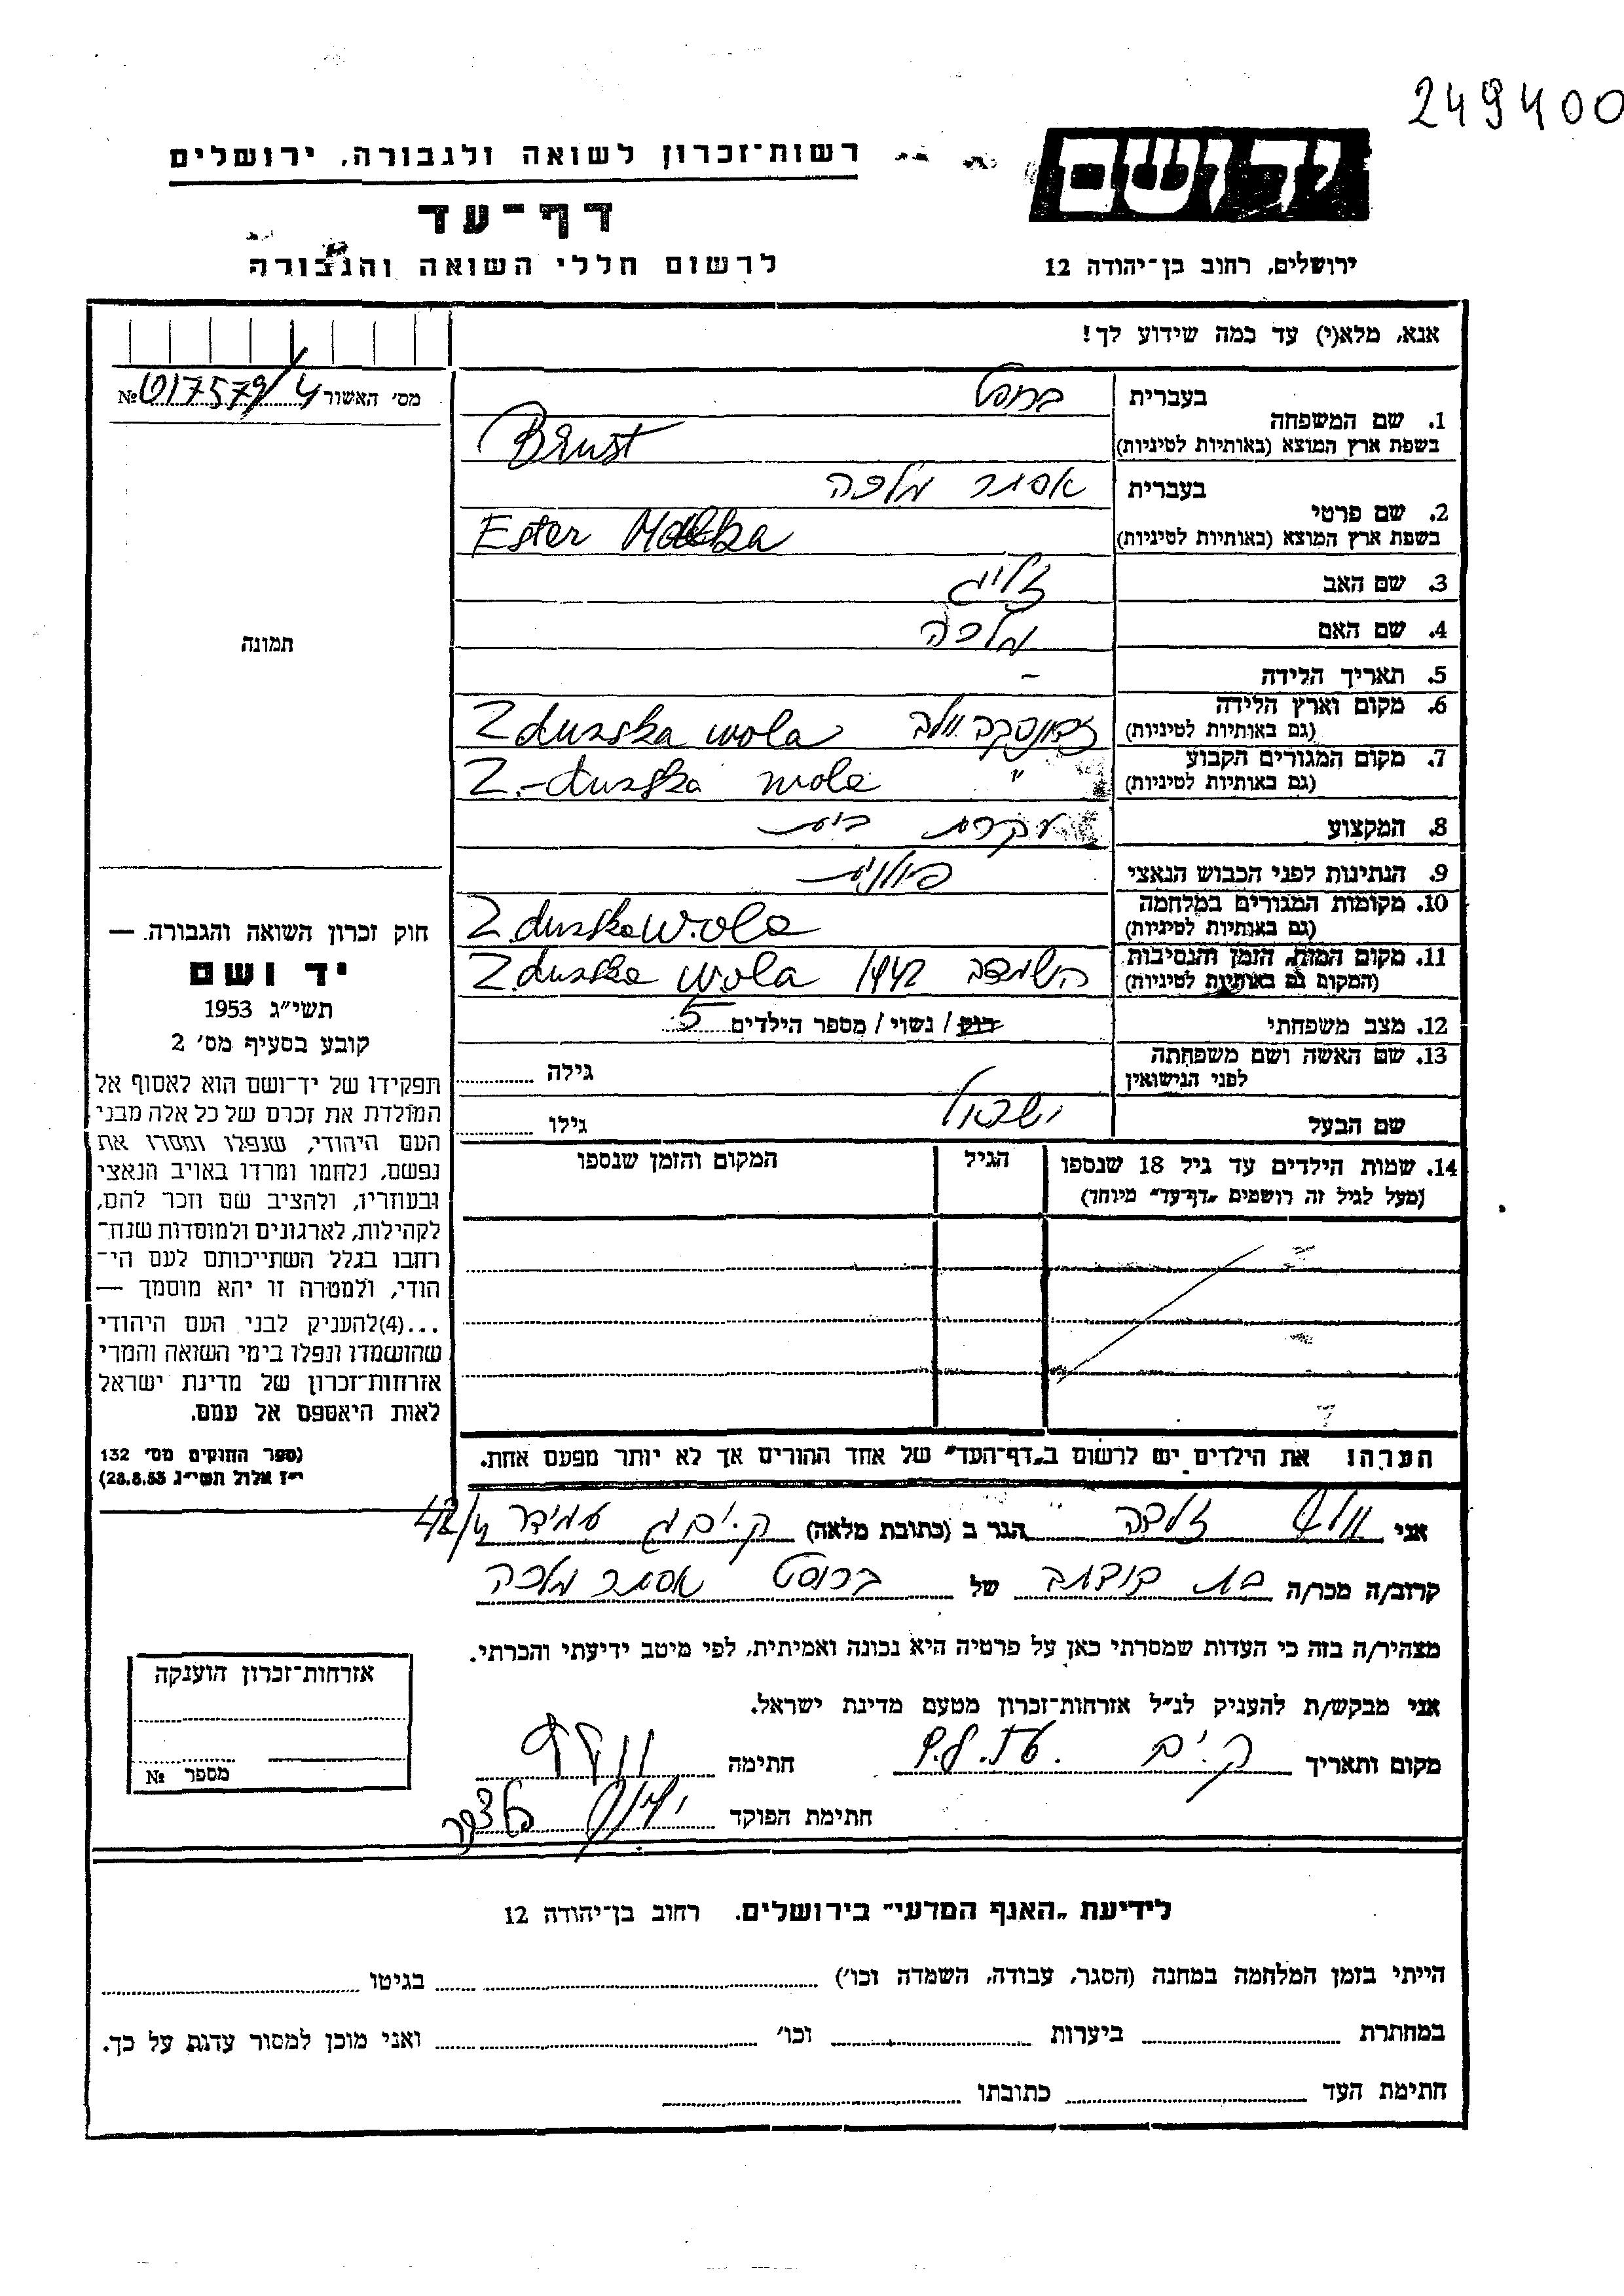 249400
רשות־זכרון לשואה ולגבורה, ירושלים
יד ושם
דף־עד
לרשום חללי השואה והגבורה
ירושלים, רחוב בן־יהודה 12
אנא, מלא(י) עד כמה שידוע לך!
מס' האשור 017579/4 №
תמונה
1. שם המשפחה
בעברית ברוסט
בשפת ארץ המוצא (באותיות לטיניות) Brust
2. שם פרטי
בעברית אסתר מלכה
בשפת ארץ המוצא (באותיות לטיניות) Ester Malka
3. שם האב זליג
4. שם האם מלכה
5. תאריך הלידה –
6. מקום וארץ הלידה (גם באותיות לטיניות) זדונסקה וולה Zdunska wola
7. מקום המגורים הקבוע (גם באותיות לטיניות) " Z.-dunska wola
8. המקצוע עקרת בית
9. הנתינות לפני הכבוש הנאצי פולנית
10. מקומות המגורים במלחמה (גם באותיות לטיניות) Zdunska Wola
11. מקום המות, הזמן והנסיבות (המקום גם באותיות לטיניות) השמדה 1942 Zdunska wola
12. מצב משפחתי רוק / נשוי / מספר הילדים 5
13. שם האשה ושם משפחתה לפני הנישואין
גילה
שם הבעל ישראל
גילו
14. שמות הילדים עד גיל 18 שנספו
(מעל לגיל זה רושמים „דף־עד" מיוחד)
הגיל
המקום והזמן שנספו
הערה: את הילדים יש לרשום ב„דף־העד" של אחד ההורים אך לא יותר מפעם אחת.
חוק זכרון השואה והגבורה —
יד ושם
תשי"ג 1953
קובע בסעיף מס' 2
תפקידו של יד־ושם הוא לאסוף אל
המולדת את זכרם של כל אלה מבני
העם היהודי, שנפלו ומסרו את
נפשם, נלחמו ומרדו באויב הנאצי
ובעוזריו, ולהציב שם וזכר להם,
לקהילות, לארגונים ולמוסדות שנח־
רבו בגלל השתייכותם לעם הי־
הודי, ולמטרה זו יהא מוסמך —
...(4)להעניק לבני העם היהודי
שהושמדו ונפלו בימי השואה והמרי
אזרחות־זכרון של מדינת ישראל
לאות היאספם אל עמם.
(ספר החוקים מס' 132
י"ז אלול תשי"ג 28.8.53)
אני זלדה הגר ב (כתובת מלאה) ק. ים עמידר 42/4
קרוב/ה מכר/ה בת דודה של ברוסט אסתר מלכה
מצהיר/ה בזה כי העדות שמסרתי כאן על פרטיה היא נכונה ואמיתית, לפי מיטב ידיעתי והכרתי.
אני מבקש/ת להעניק לנ"ל אזרחות־זכרון מטעם מדינת ישראל.
מקום ותאריך ק. ים חתימה
חתימת הפוקד
אזרחות־זכרון הוענקה
מספר №
לידיעת „האגף המדעי" בירושלים. רחוב בן־יהודה 12
הייתי בזמן המלחמה במחנה (הסגר, עבודה, השמדה וכו') בגיטו
במחתרת ביערות וכו' ואני מוכן למסור עדות על כך.
חתימת העד כתובתו